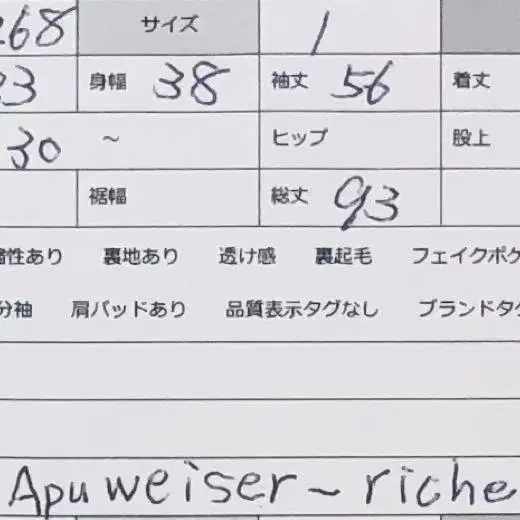 268 サイズ 1
33 身幅 38 袖丈 56 着丈
30 ~ ヒップ 股上
裾幅 総丈 93
性あり 裏地あり 透け感 裏起毛 フェイクポケ
分袖 肩パッドあり 品質表示タグなし ブランドタグ
Apuweiser~riche